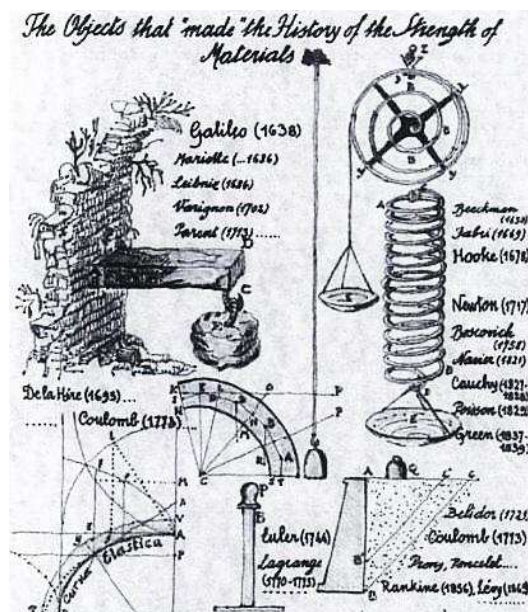 The Objects that "made" the History of the Strength of
Materials
Galileo (1638)
Mariotte (...1686)
Leibniz (1686)
Varignon (1702)
Parent (1713) .....
Beeckman
(1630)
Fabri (1669)
Hooke (1678)
Newton (1717)
Boscovich
(1758)
Navier (1821)
Cauchy (1827-
1828)
Poisson (1829)
Green (1837-
1839)
De la Hire (1695) ...
Coulomb (1773)
Curva Elastica
Euler (1744)
Lagrange
(1770-1773)
Belidor (1729)
Coulomb (1773)
Prony, Poncelet ....
Rankine (1856), Lévy